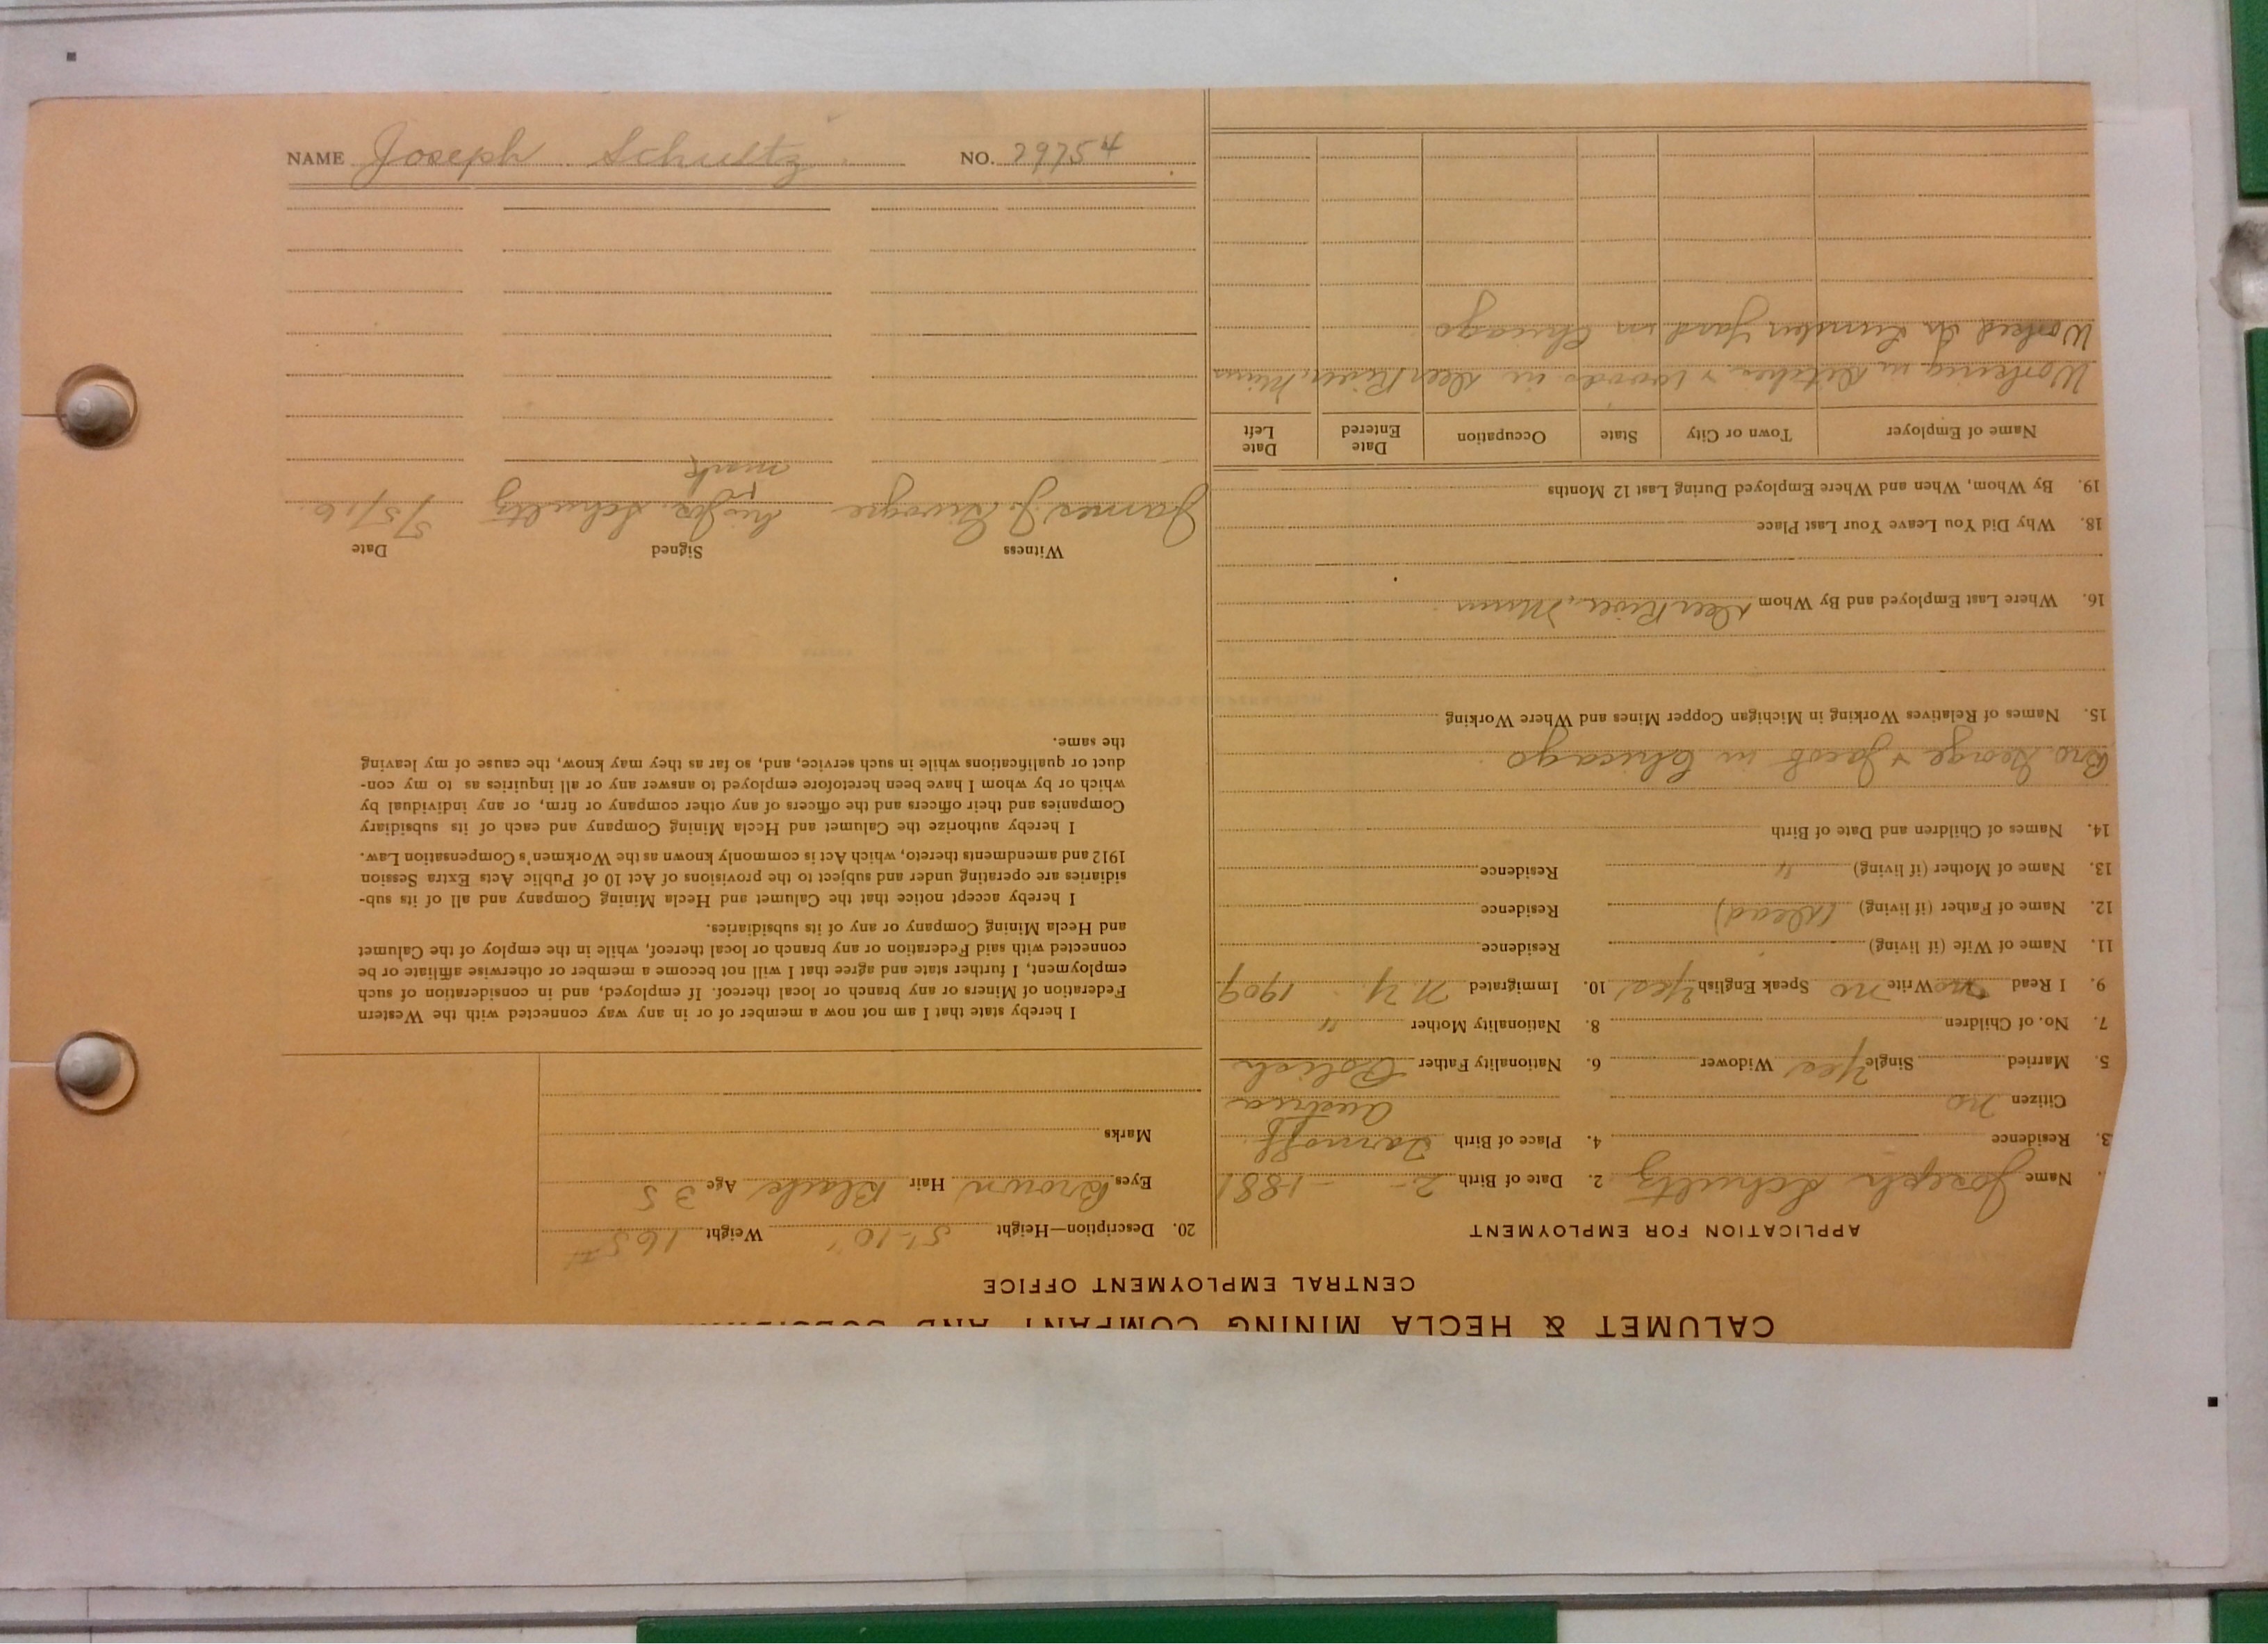 NAME Joseph Schultz NO. 29754
CALUMET & HECLA MINING COMPANY AND
CENTRAL EMPLOYMENT OFFICE
APPLICATION FOR EMPLOYMENT
Name Joseph Schultz 2. Date of Birth 2 - - 1881
3. Residence 4. Place of Birth Tarnoff
Citizen no Austria
5. Married Single Yes Widower 6. Nationality Father Polish
7. No. of Children 8. Nationality Mother "
9. I Read no Write no Speak English Yes 10. Immigrated N.Y. 1909
11. Name of Wife (if living) Residence
12. Name of Father (if living) (Dead) Residence
13. Name of Mother (if living) " Residence
14. Names of Children and Date of Birth
Bro. George & Jacob in Chicago
15. Names of Relatives Working in Michigan Copper Mines and Where Working
16. Where Last Employed and By Whom Deer River, Minn
18. Why Did You Leave Your Last Place
19. By Whom, When and Where Employed During Last 12 Months
Name of Employer Town or City State Occupation Date Entered Date Left
Working in Kitchen & woods in Deer River, Minn
Worked in Lumber Yard in Chicago
20. Description—Height 5'-10" Weight 165#
Eyes Brown Hair Black Age 35
Marks
I hereby state that I am not now a member of or in any way connected with the Western
Federation of Miners or any branch or local thereof. If employed, and in consideration of such
employment, I further state and agree that I will not become a member or otherwise affiliate or be
connected with said Federation or any branch or local thereof, while in the employ of the Calumet
and Hecla Mining Company or any of its subsidiaries.
I hereby accept notice that the Calumet and Hecla Mining Company and all of its sub-
sidiaries are operating under and subject to the provisions of Act 10 of Public Acts Extra Session
1912 and amendments thereto, which Act is commonly known as the Workmen's Compensation Law.
I hereby authorize the Calumet and Hecla Mining Company and each of its subsidiary
Companies and their officers and the officers of any other company or firm, or any individual by
which or by whom I have been heretofore employed to answer any or all inquiries as to my con-
duct or qualifications while in such service, and, so far as they may know, the cause of my leaving
the same.
Witness Signed Date
James J. his Jos. Schultz
mark